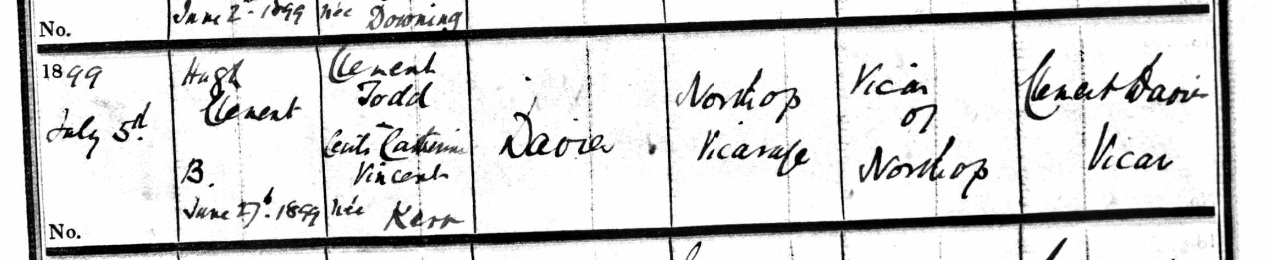 June 2nd 1899
née Downing
No.
1899
July 5d.
Hugh
Clement
B.
June 27th. 1899
Clement
Todd
Catherine
Vincent
née Kerr
Davies
Northop
Vicarage
Vicar
of
Northop
Clement Davies
Vicar
No.